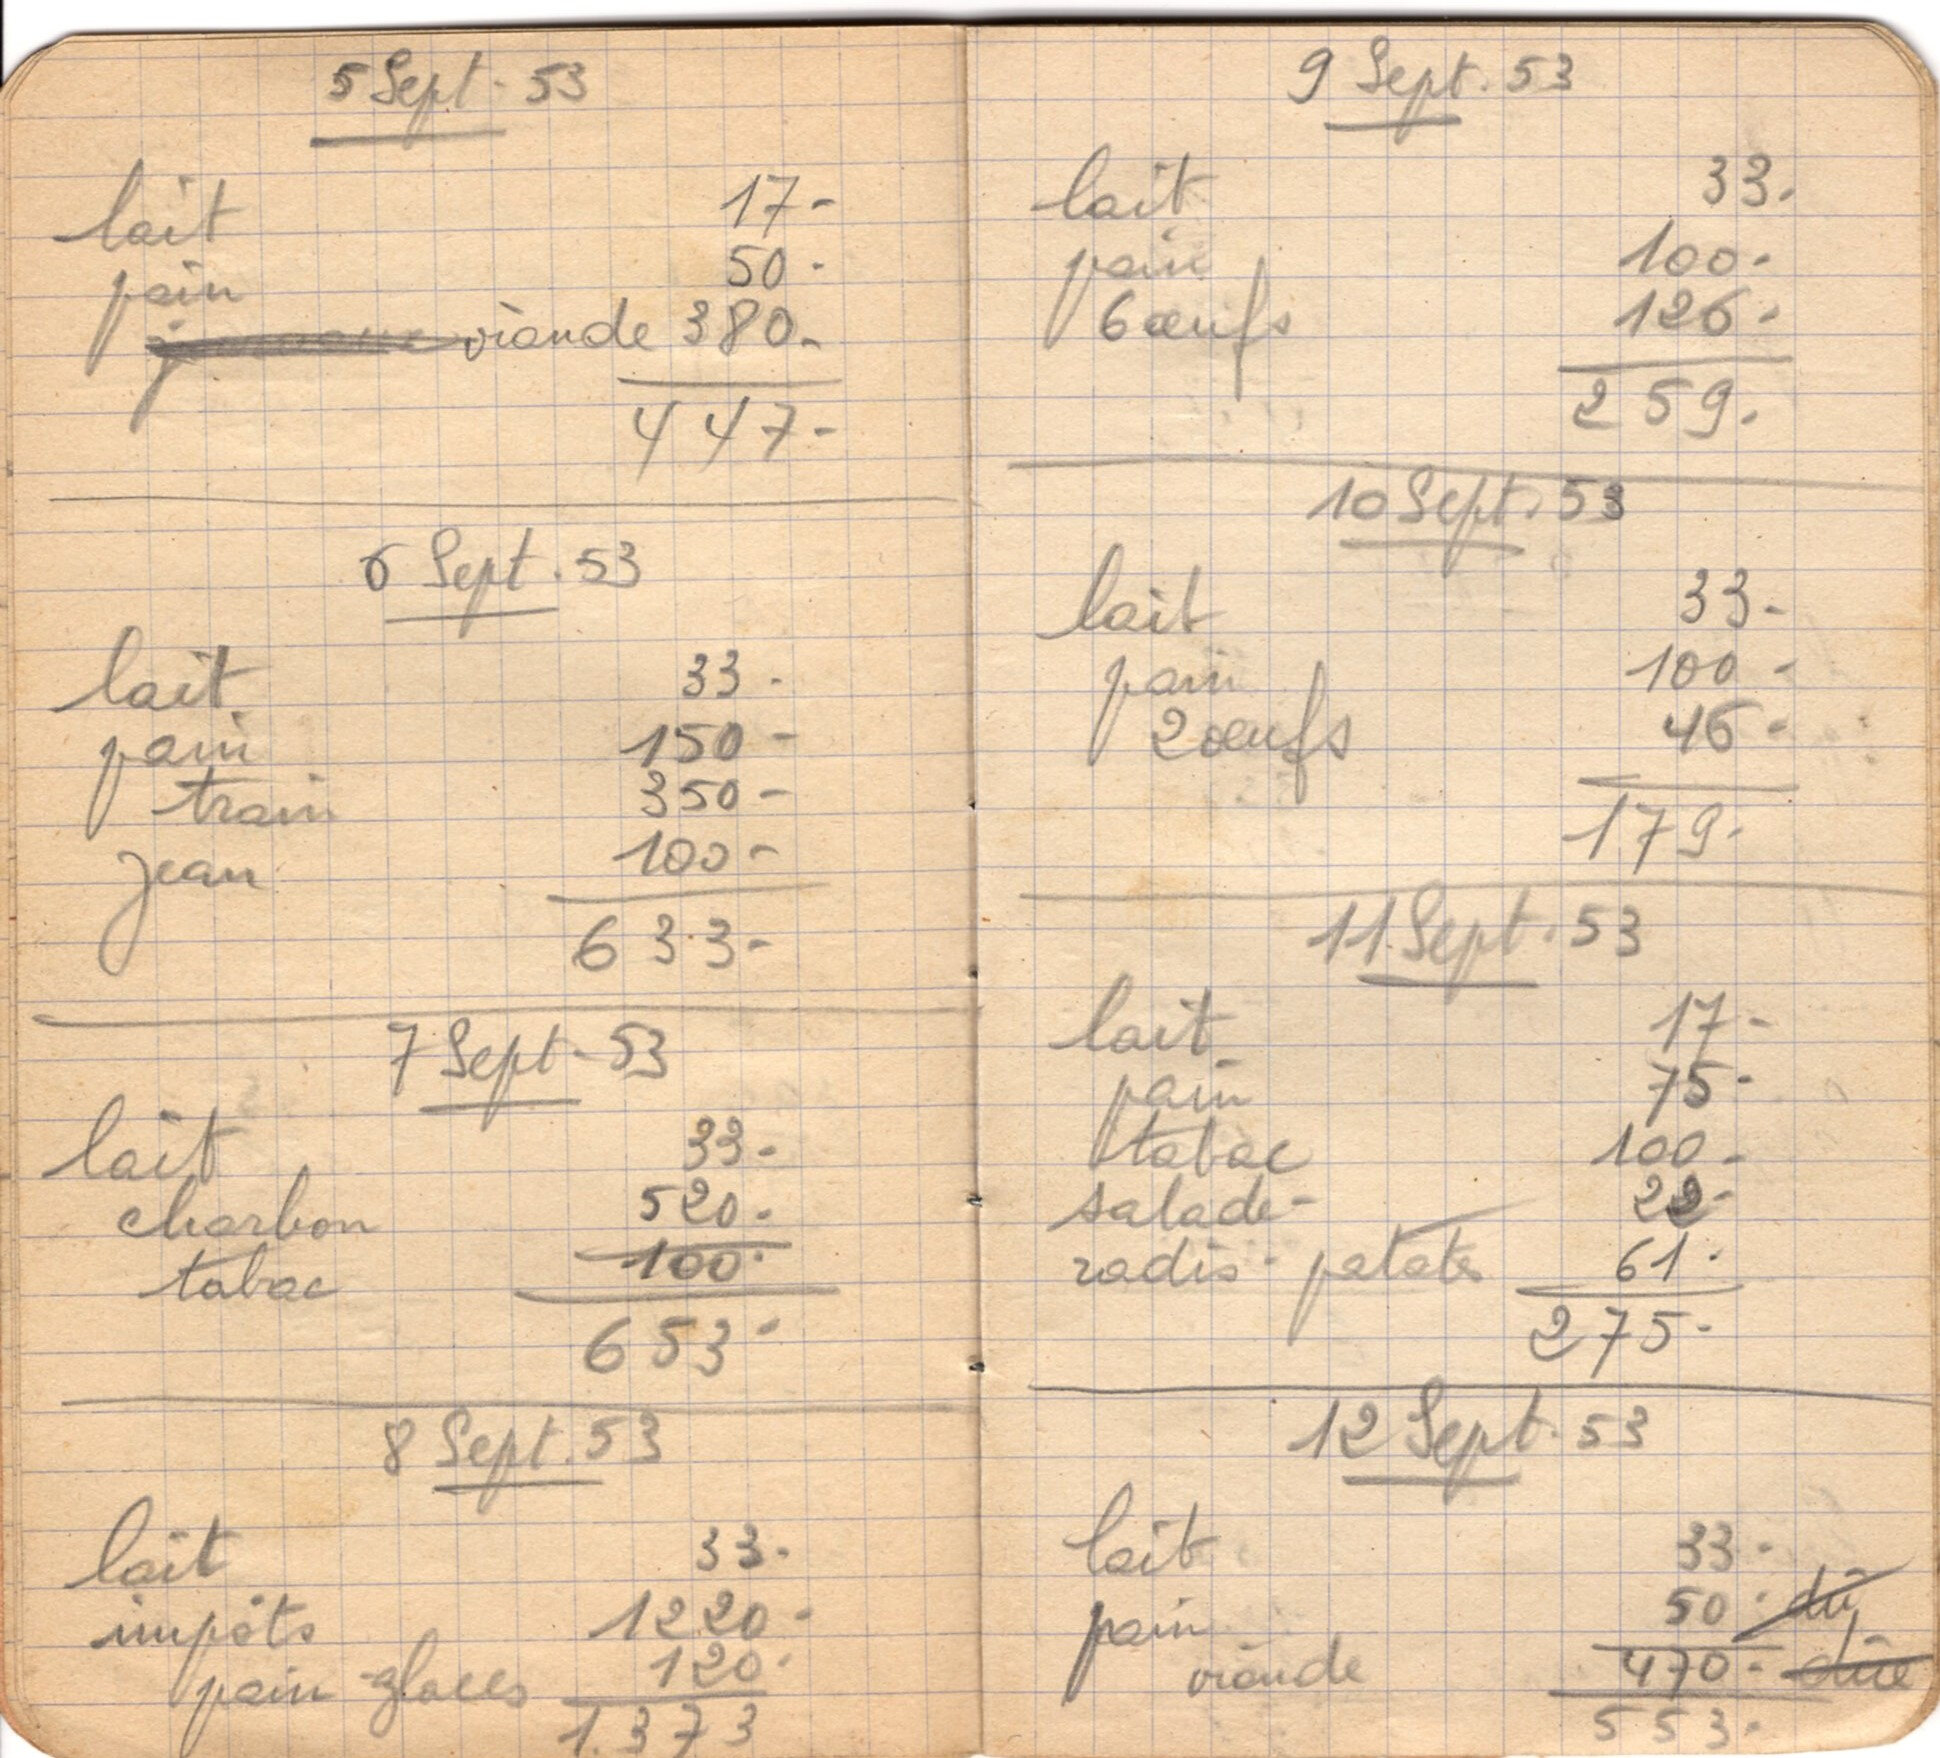 5 Sept. 53
lait 17-
pain 50-
viande 380-
447-
6 Sept. 53
lait 33-
pain 150-
train 350-
Jean 100-
633-
7 Sept. 53
lait 33-
charbon 520-
tabac 100-
653-
8 Sept. 53
lait 33-
impôts 1220-
pain - glaces 120-
1.373
9 Sept. 53
lait 33-
pain 100-
6 œufs 126-
259-
10 Sept. 53
lait 33-
pain 100-
2 œufs 46-
179-
11 Sept. 53
lait 17-
pain 75-
tabac 100-
salade- 22-
radis - patates 61-
275-
12 Sept. 53
lait 33-
pain 50- dû
viande 470- dûe
553-